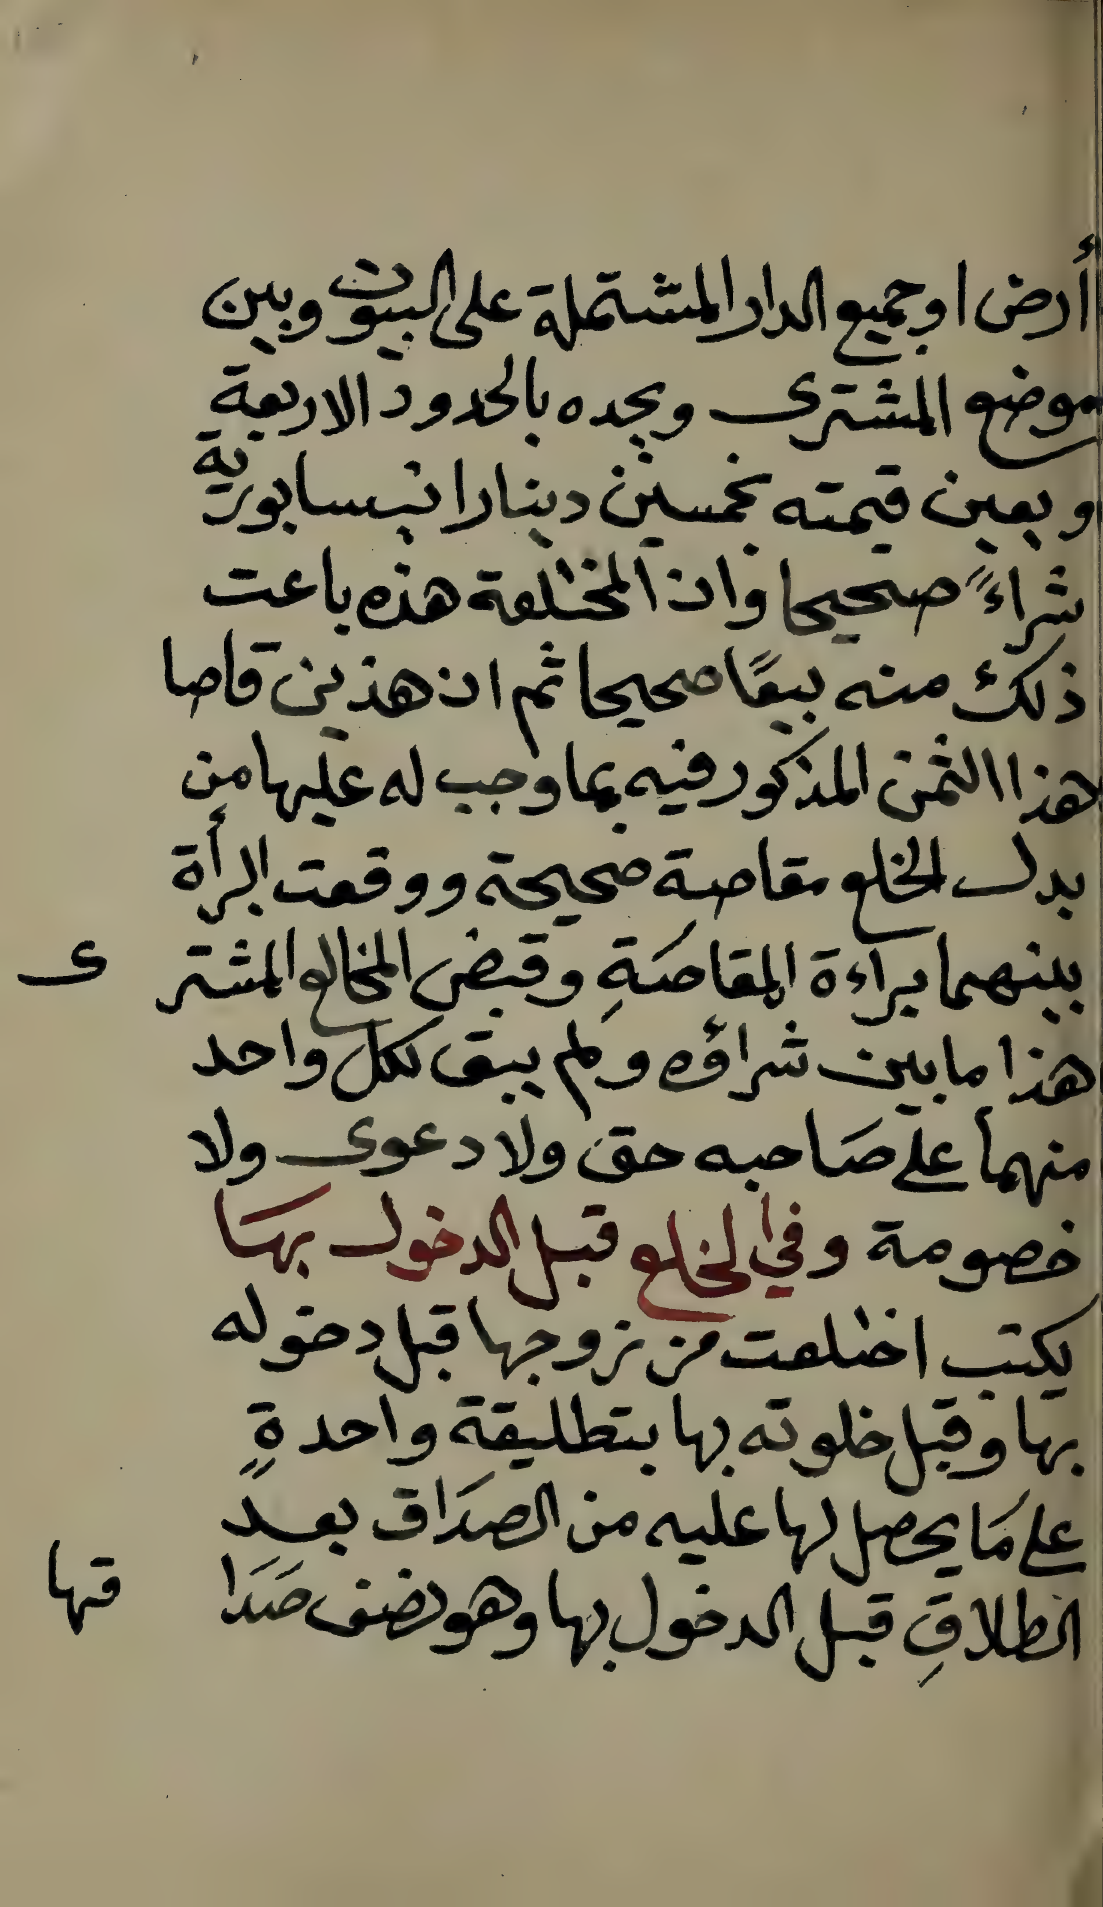 أرض او جميع الدار المشتملة على البيوت وبين
موضع المشترى ويحده بالحدود الاربعة
وبعين قيمته بخمسين دينارا نيسابورية
شراءً صحيحا وان المختلعة هذه باعت
ذلك منه بيعًا صحيحا ثم ان هذين قاصا
هذا الثمن المذكور فيه بما وجب له عليها من
بدل الخلع مقاصة صحيحة ووقعت البرأة
بينهما براءة المقاصَةِ وقبض المخالع المشترى
هذا ما بين شراؤه ولم يبق لكل واحد
منهما على صَاحبه حق ولا دعوى ولا
خصومة وفي الخلع قبل الدخول بهَا
يكتب اختلعت من زوجها قبل دخوله
بها وقبل خلوته بها بتطليقة واحدةٍ
على مَا يحصل لها عليه من الصدَاق بعد
الطلاقِ قبل الدخول بها وهو نصف صَدَاقها